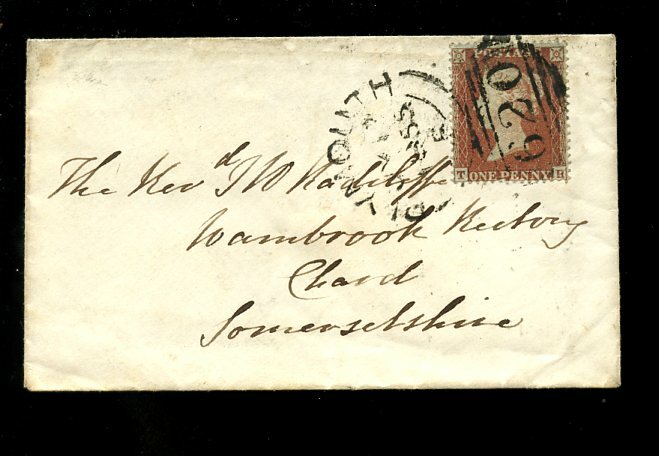 The Revd J W Radcliffe
Wambrook Rectory
Chard
Somersetshire
620
T ONE PENNY
PLYMOUTH